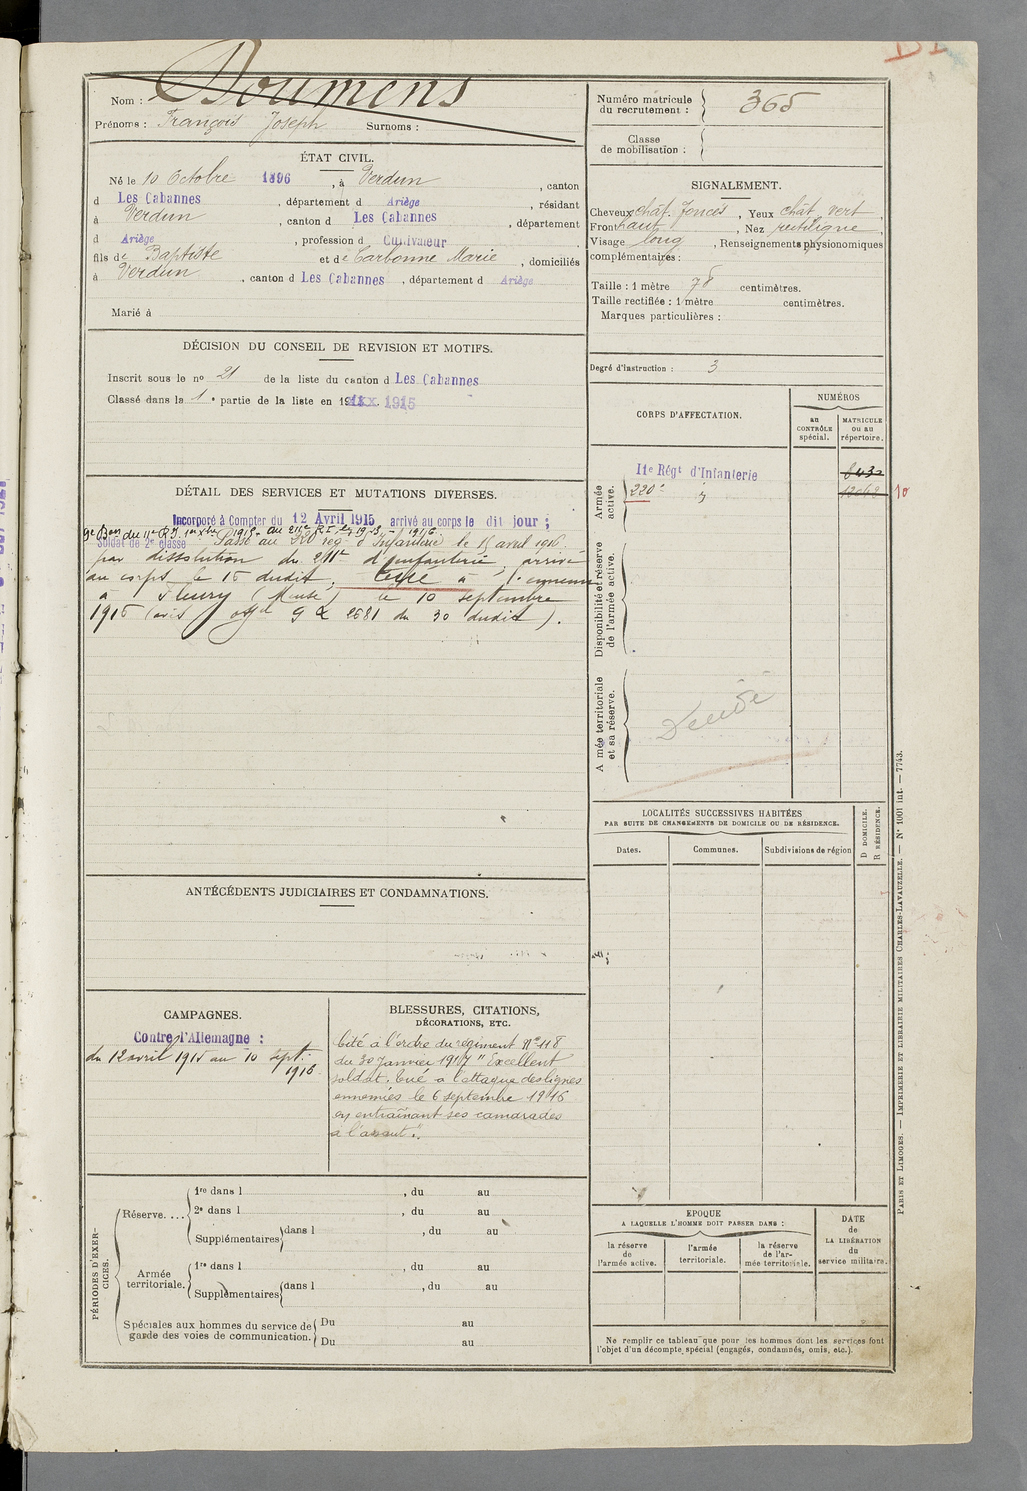 Nom : Doumens
Prénoms : François Joseph Surnoms :
Numéro matricule du recrutement : 365
Classe de mobilisation :
ÉTAT CIVIL.
Né le 10 Octobre 1896, à Verdun, canton
d Les Cabannes, département d Ariège, résidant
à Verdun, canton d Les Cabannes, département
d Ariège, profession d Cultivateur
fils de Baptiste et de Carbonne Marie, domiciliés
à Verdun, canton d Les Cabannes, département d Ariège
Marié à
SIGNALEMENT.
Cheveux chât. foncés, Yeux chât. vert,
Front haut, Nez rectiligne,
Visage long, Renseignements physionomiques
complémentaires :
Taille : 1 mètre 78 centimètres.
Taille rectifiée : 1 mètre centimètres.
Marques particulières :
DÉCISION DU CONSEIL DE REVISION ET MOTIFS.
Inscrit sous le no 21 de la liste du canton d Les Cabannes
Classé dans la 1e partie de la liste en 1915
Degré d'instruction : 3
DÉTAIL DES SERVICES ET MUTATIONS DIVERSES.
Incorporé à Compter du 12 Avril 1915 arrivé au corps le dit jour ;
9e Bon du 11e R.I. 1er xbre 1915. au 211e R.I. le 19-3-1916
Soldat de 2e classe Passé au 220 rég. d'Infanterie le 15 avril 1916.
par dissolution du 211e d'Infanterie, arrivé
au corps le 15 dudit, tué à l'ennemi
à Fleury (Meuse) le 10 septembre
1916 (avis offel G 2581 du 30 dudit).
CORPS D'AFFECTATION.
NUMÉROS
au CONTRÔLE spécial.
MATRICULE ou au répertoire.
Armée active.
11e Régt d'Infanterie
220e
10
Disponibilité et réserve de l'armée active.
Armée territoriale et sa réserve.
LOCALITÉS SUCCESSIVES HABITÉES
PAR SUITE DE CHANGEMENTS DE DOMICILE OU DE RÉSIDENCE.
Dates. Communes. Subdivisions de région
D DOMICILE.
R RÉSIDENCE.
ANTÉCÉDENTS JUDICIAIRES ET CONDAMNATIONS.
CAMPAGNES.
Contre l'Allemagne :
du 12 avril 1915 au 10 sept.
1916
BLESSURES, CITATIONS,
DÉCORATIONS, ETC.
Cité à l'ordre du régiment No 118
du 30 Janvier 1917 "Excellent
soldat. Tué à l'attaque des lignes
ennemies le 6 septembre 1916
en entraînant ses camarades
à l'assaut".
PÉRIODES D'EXERCICES.
Réserve....
1re dans l , du au
2e dans l , du au
Supplémentaires dans l , du au
Armée territoriale.
1re dans l , du au
Supplémentaires dans l , du au
Spéciales aux hommes du service de garde des voies de communication.
Du au
Du au
EPOQUE
A LAQUELLE L'HOMME DOIT PASSER DANS :
la réserve de l'armée active.
l'armée territoriale.
la réserve de l'armée territoriale.
DATE de LA LIBÉRATION du service militaire.
Ne remplir ce tableau que pour les hommes dont les services font
l'objet d'un décompte spécial (engagés, condamnés, omis, etc.).
PARIS ET LIMOGES. — IMPRIMERIE ET LIBRAIRIE MILITAIRES CHARLES-LAVAUZELLE. — No 1001 int. — 7743.